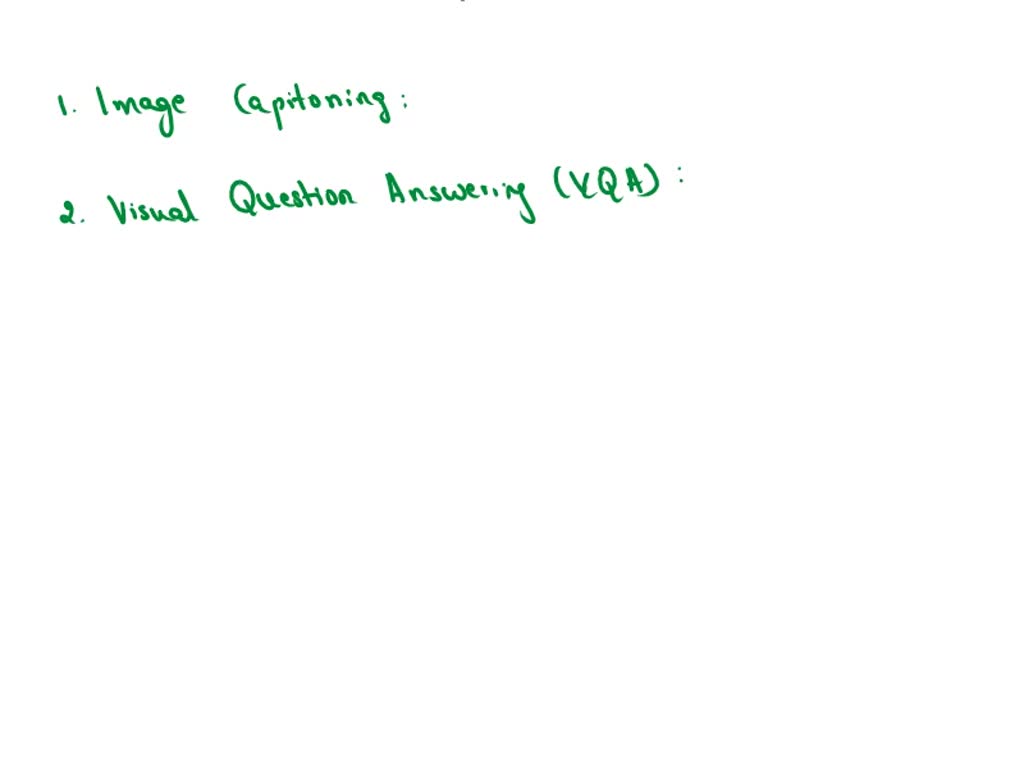 1. Image Capitoning:
2. Visual Question Answering (VQA):